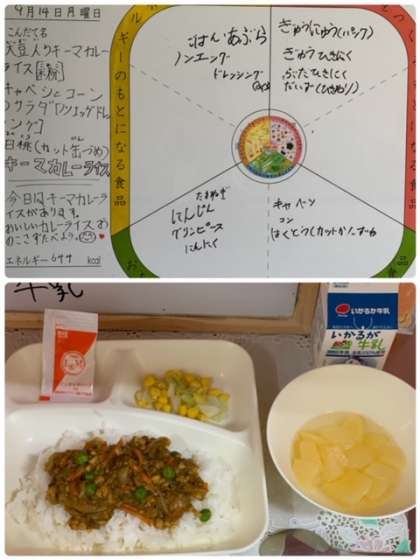 9月14日月曜日
こんだて名
大豆入りキーマカレー
ライス
キャベツとコーン
のサラダ(ノンエッグドレッ
シング)
白桃(カット缶づめ)
キーマカレーライス
今日はキーマカレーラ
イスがあります。
おいしいカレーライス
のこさずたべよう。
エネルギー 644 kcal
ルギーのもとになる食品
ごはん あぶら
ノンエッグ
ドレッシング
ぎゅうにゅう(パック)
ぎゅうひきにく
ぶたひきにく
だいず(ひきわり)
たまねぎ
にんじん
グリンピース
にんにく
キャベツ
コーン
はくとう(カットかんづめ)
牛乳
いかるが牛乳
いかるが
牛乳